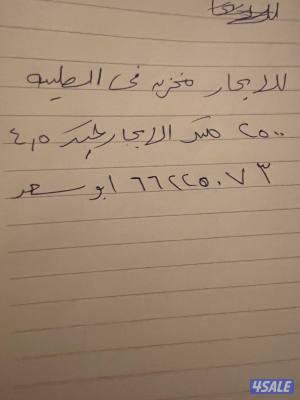 للايجار مخزن في الصليبيه
٢٥٠٠ متر الايجار ٤,٥
٦٦٢٢٥٠٧٣ ابو سعد
4SALE